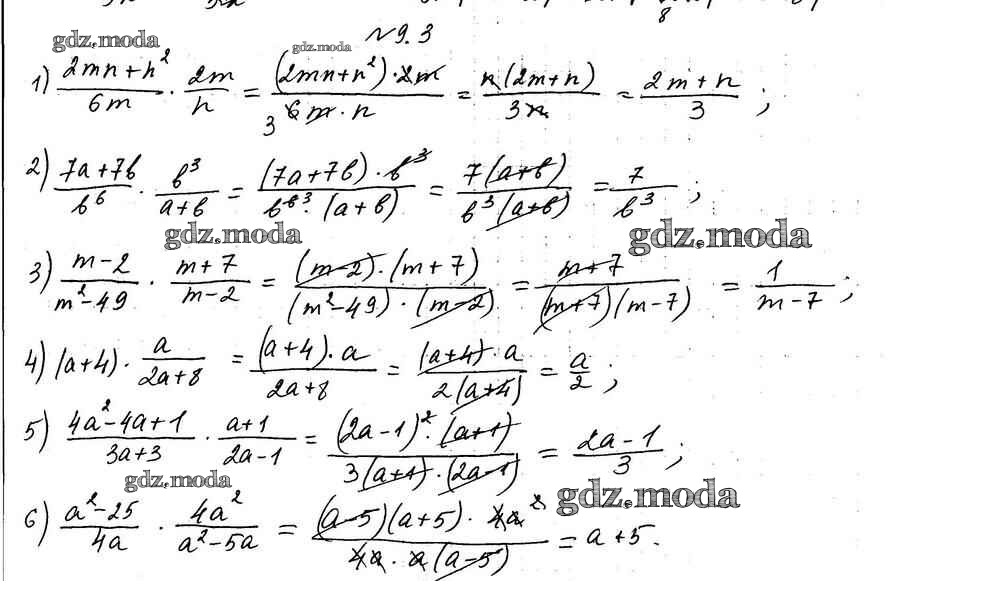 №9.3
gdz.moda
gdz.moda
1) (2mn+n²)/(6m) · (2m)/(n) = ((2mn+n²)·2m)/(6m·n) 3 = (n(2m+n))/(3n) = (2m+n)/3 ;
2) (7a+7b)/(b⁶) · (b³)/(a+b) = ((7a+7b)·b³)/(b⁶ ³·(a+b)) = (7(a+b))/(b³(a+b)) = 7/b³ ;
gdz.moda
gdz.moda
3) (m-2)/(m²-49) · (m+7)/(m-2) = ((m-2)·(m+7))/((m²-49)·(m-2)) = (m+7)/((m+7)(m-7)) = 1/(m-7) ;
4) (a+4) · a/(2a+8) = ((a+4)·a)/(2a+8) = ((a+4)·a)/(2(a+4)) = a/2 ;
5) (4a²-4a+1)/(3a+3) · (a+1)/(2a-1) = ((2a-1)²·(a+1))/(3(a+1)·(2a-1)) = (2a-1)/3 ;
gdz.moda
gdz.moda
6) (a²-25)/(4a) · (4a²)/(a²-5a) = ((a-5)(a+5)·4a²)/(4a·a(a-5)) = a+5.